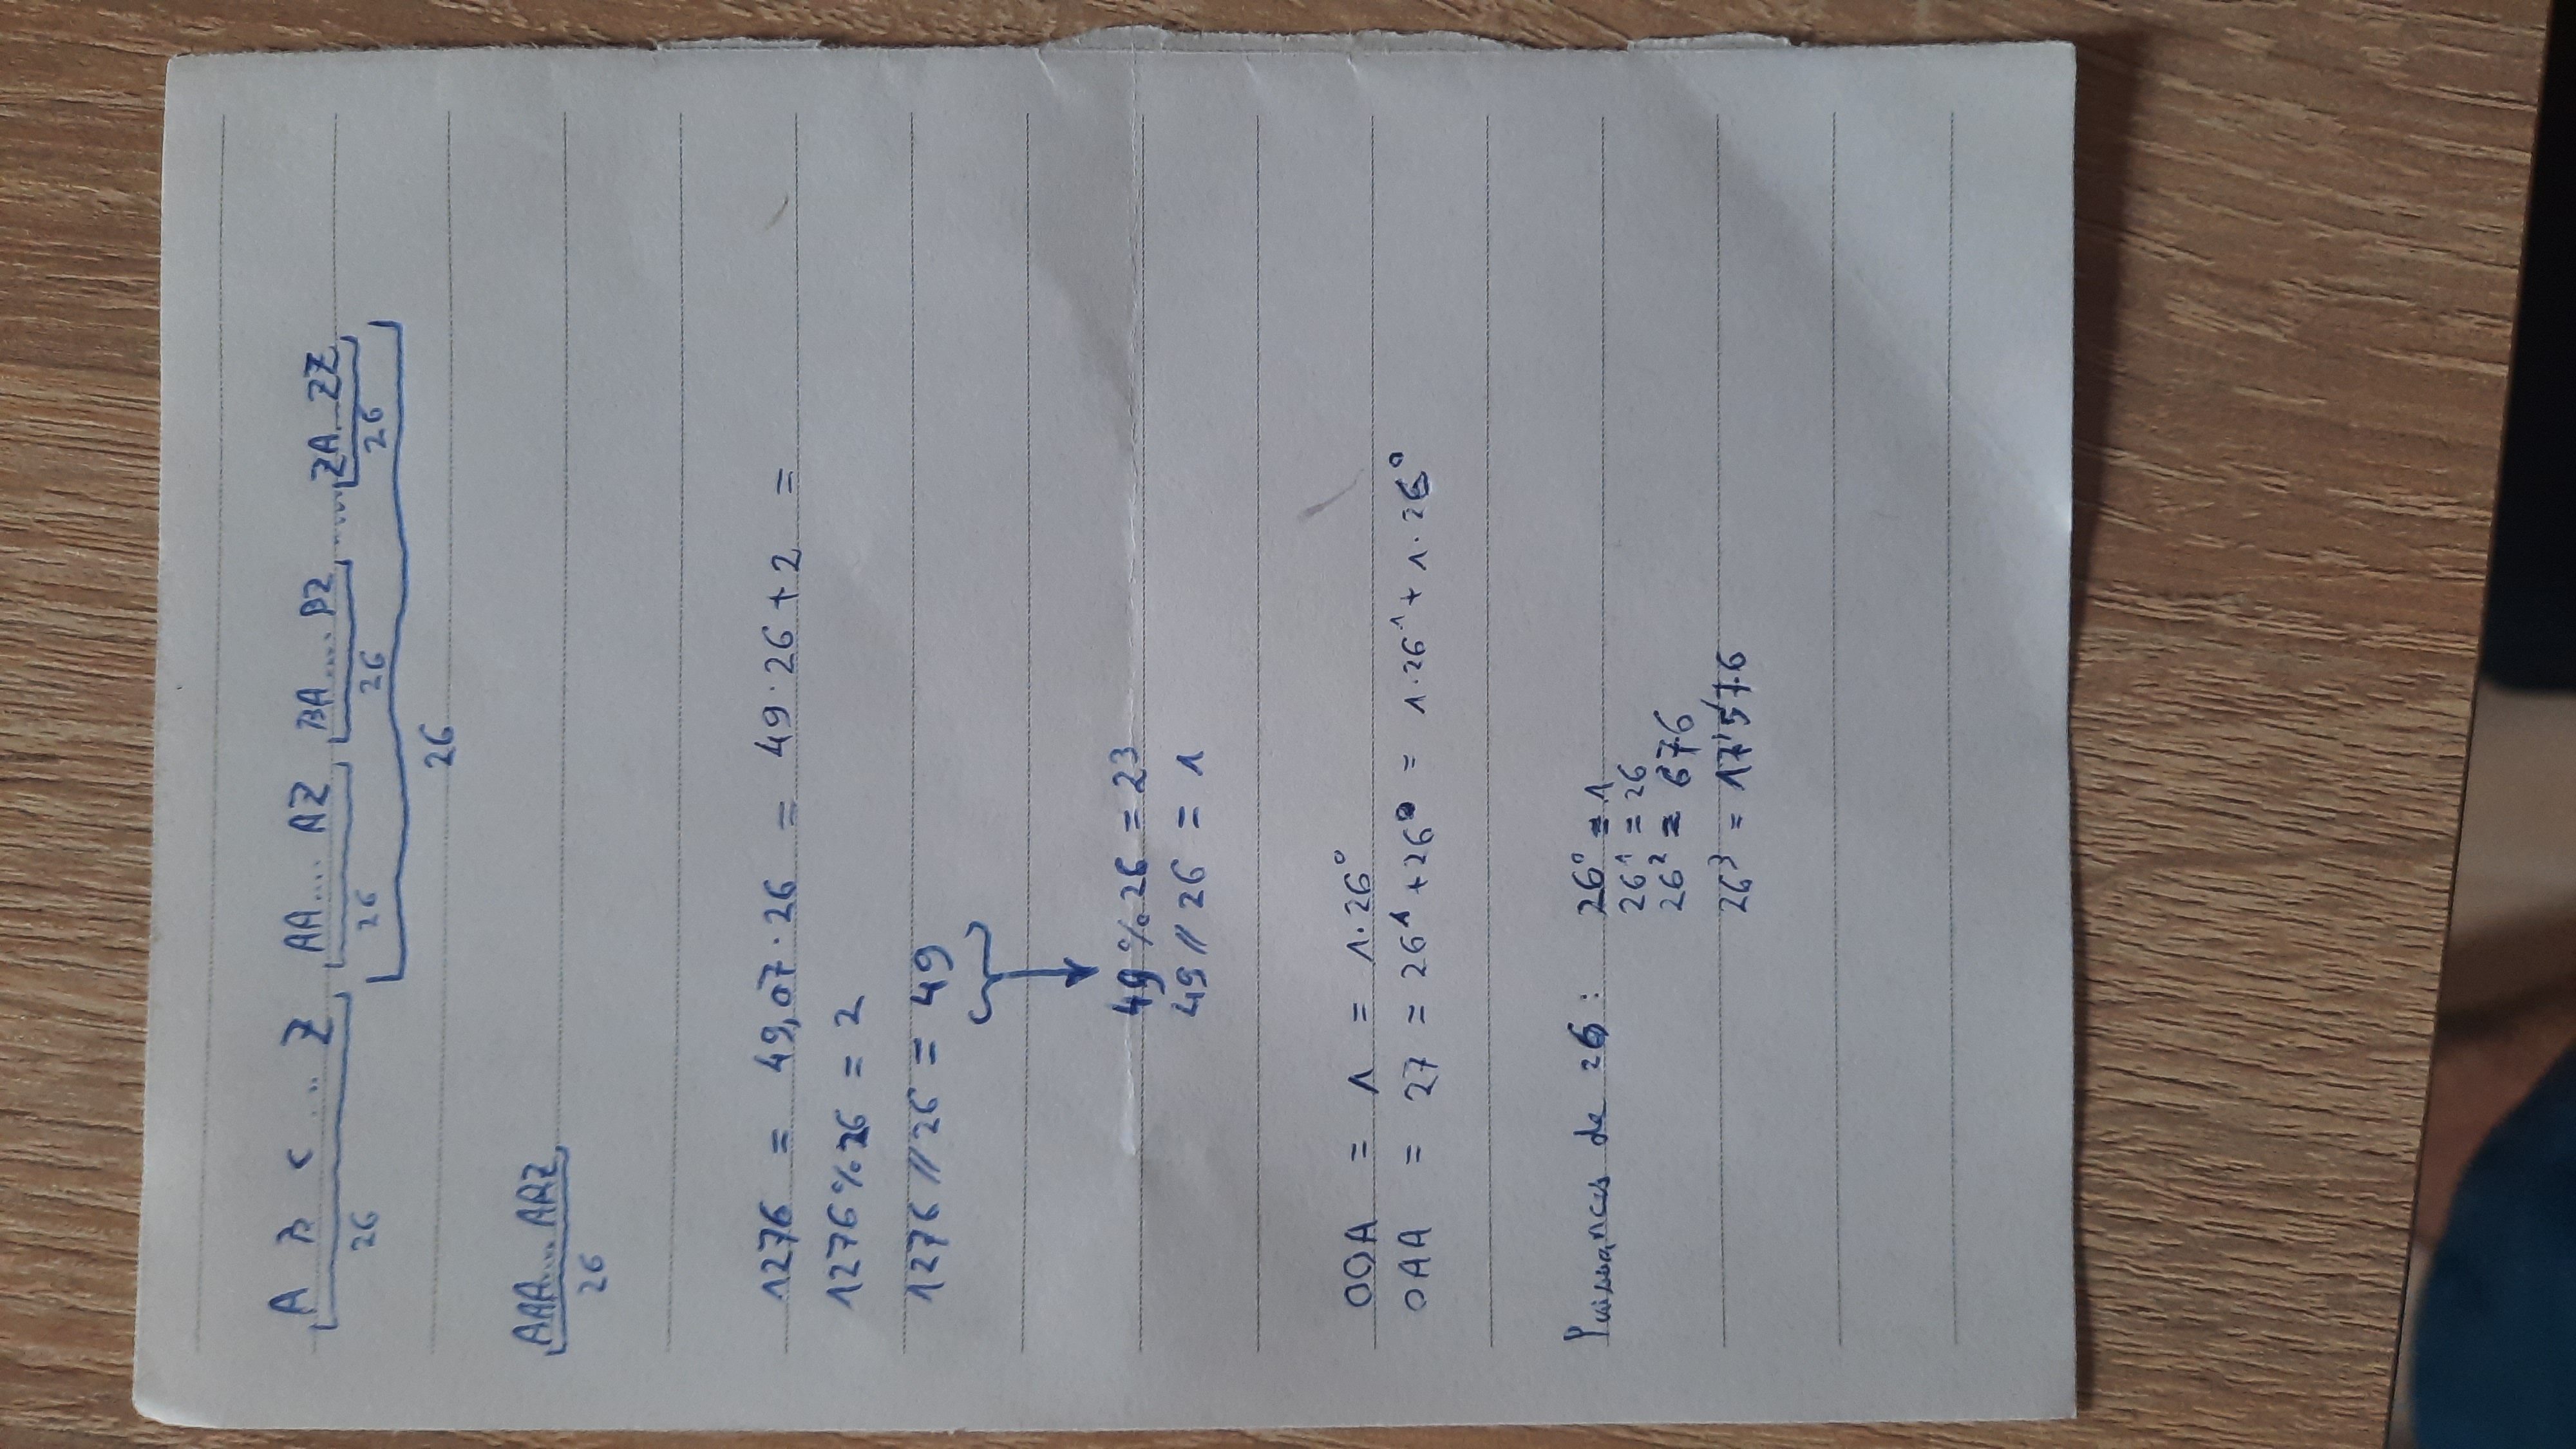 A B C ... Z AA.... AZ BA.... BZ ..... ZA...ZZ
26 26 26 26
26
AAA.... AAZ
26
1276 = 49,07 · 26 = 49 · 26 + 2 =
1276 % 26 = 2
1276 // 26 = 49
49 % 26 = 23
49 // 26 = 1
00A = 1 = 1·26⁰
0AA = 27 = 26¹ + 26⁰ = 1·26¹ + 1·26⁰
Puissances de 26 : 26⁰ = 1
26¹ = 26
26² = 676
26³ = 17'576